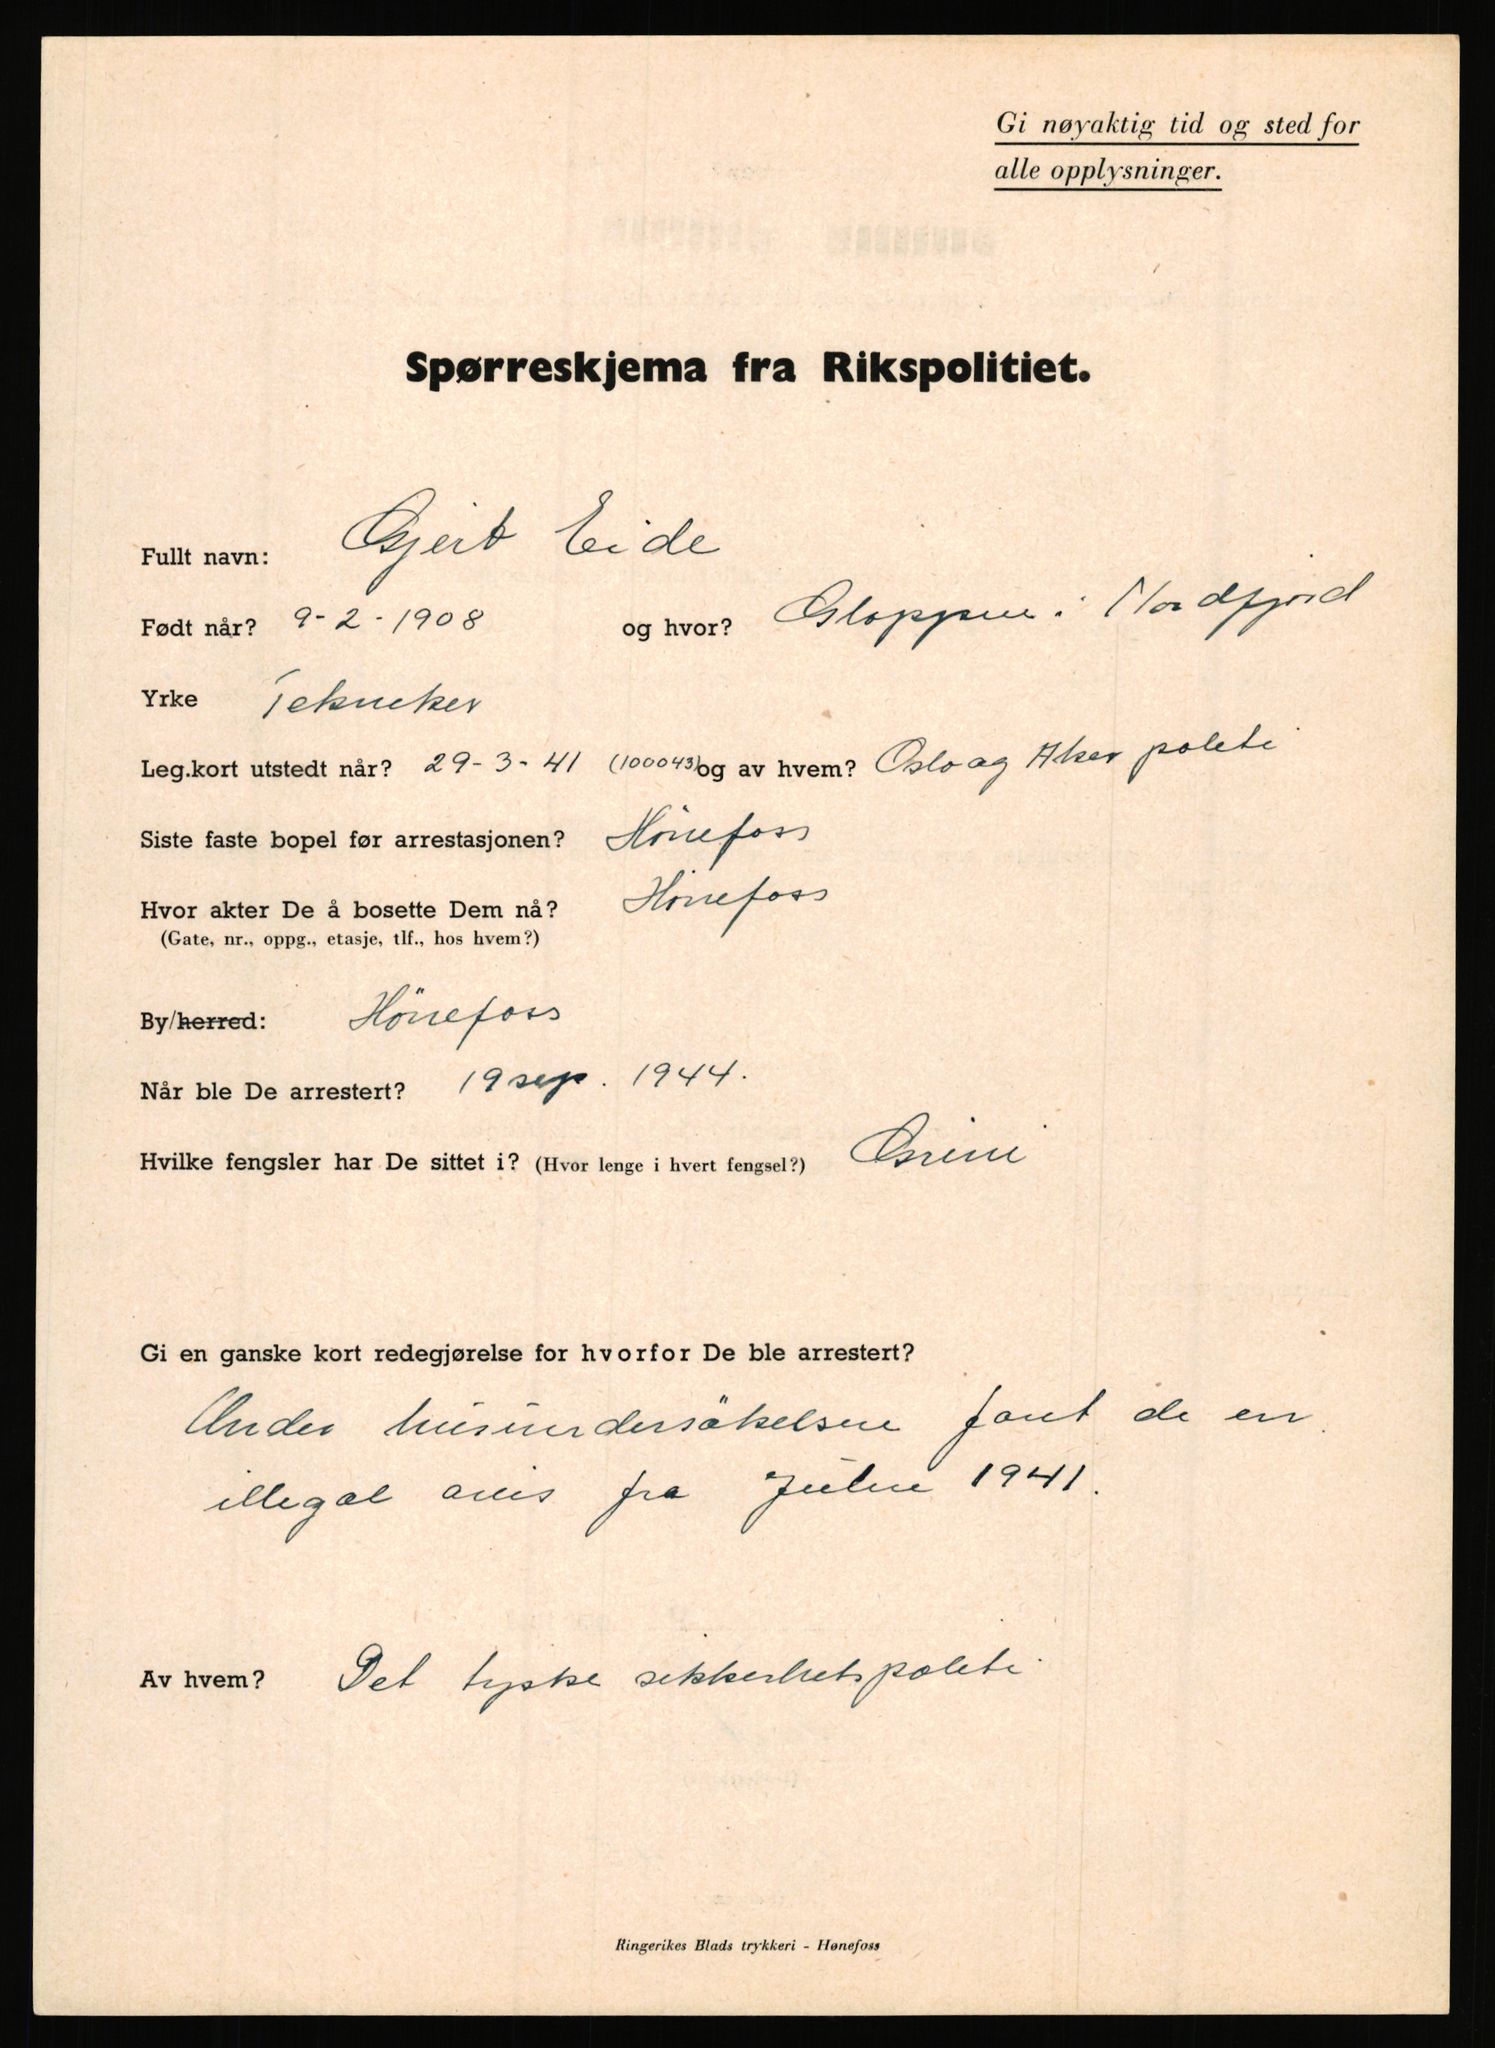 Gi nøyaktig tid og sted for
alle opplysninger.
Spørreskjema fra Rikspolitiet.
Fullt navn: Gjert Eide
Født når? 9-2-1908 og hvor? Gloppen i Nordfjord
Yrke Tekniker
Leg.kort utstedt når? 29-3-41 (100043) og av hvem? Oslo og Aker politi
Siste faste bopel før arrestasjonen? Hönefoss
Hvor akter De å bosette Dem nå? Hönefoss
(Gate, nr., oppg., etasje, tlf., hos hvem?)
By/herred: Hönefoss
Når ble De arrestert? 19 sep. 1944.
Hvilke fengsler har De sittet i? (Hvor lenge i hvert fengsel?) Grini
Gi en ganske kort redegjørelse for hvorfor De ble arrestert?
Under husundersökelsen fant de en
illegal avis fra Julen 1941.
Av hvem? Det tyske sikkerhetspoliti
Ringerikes Blads trykkeri - Hønefoss